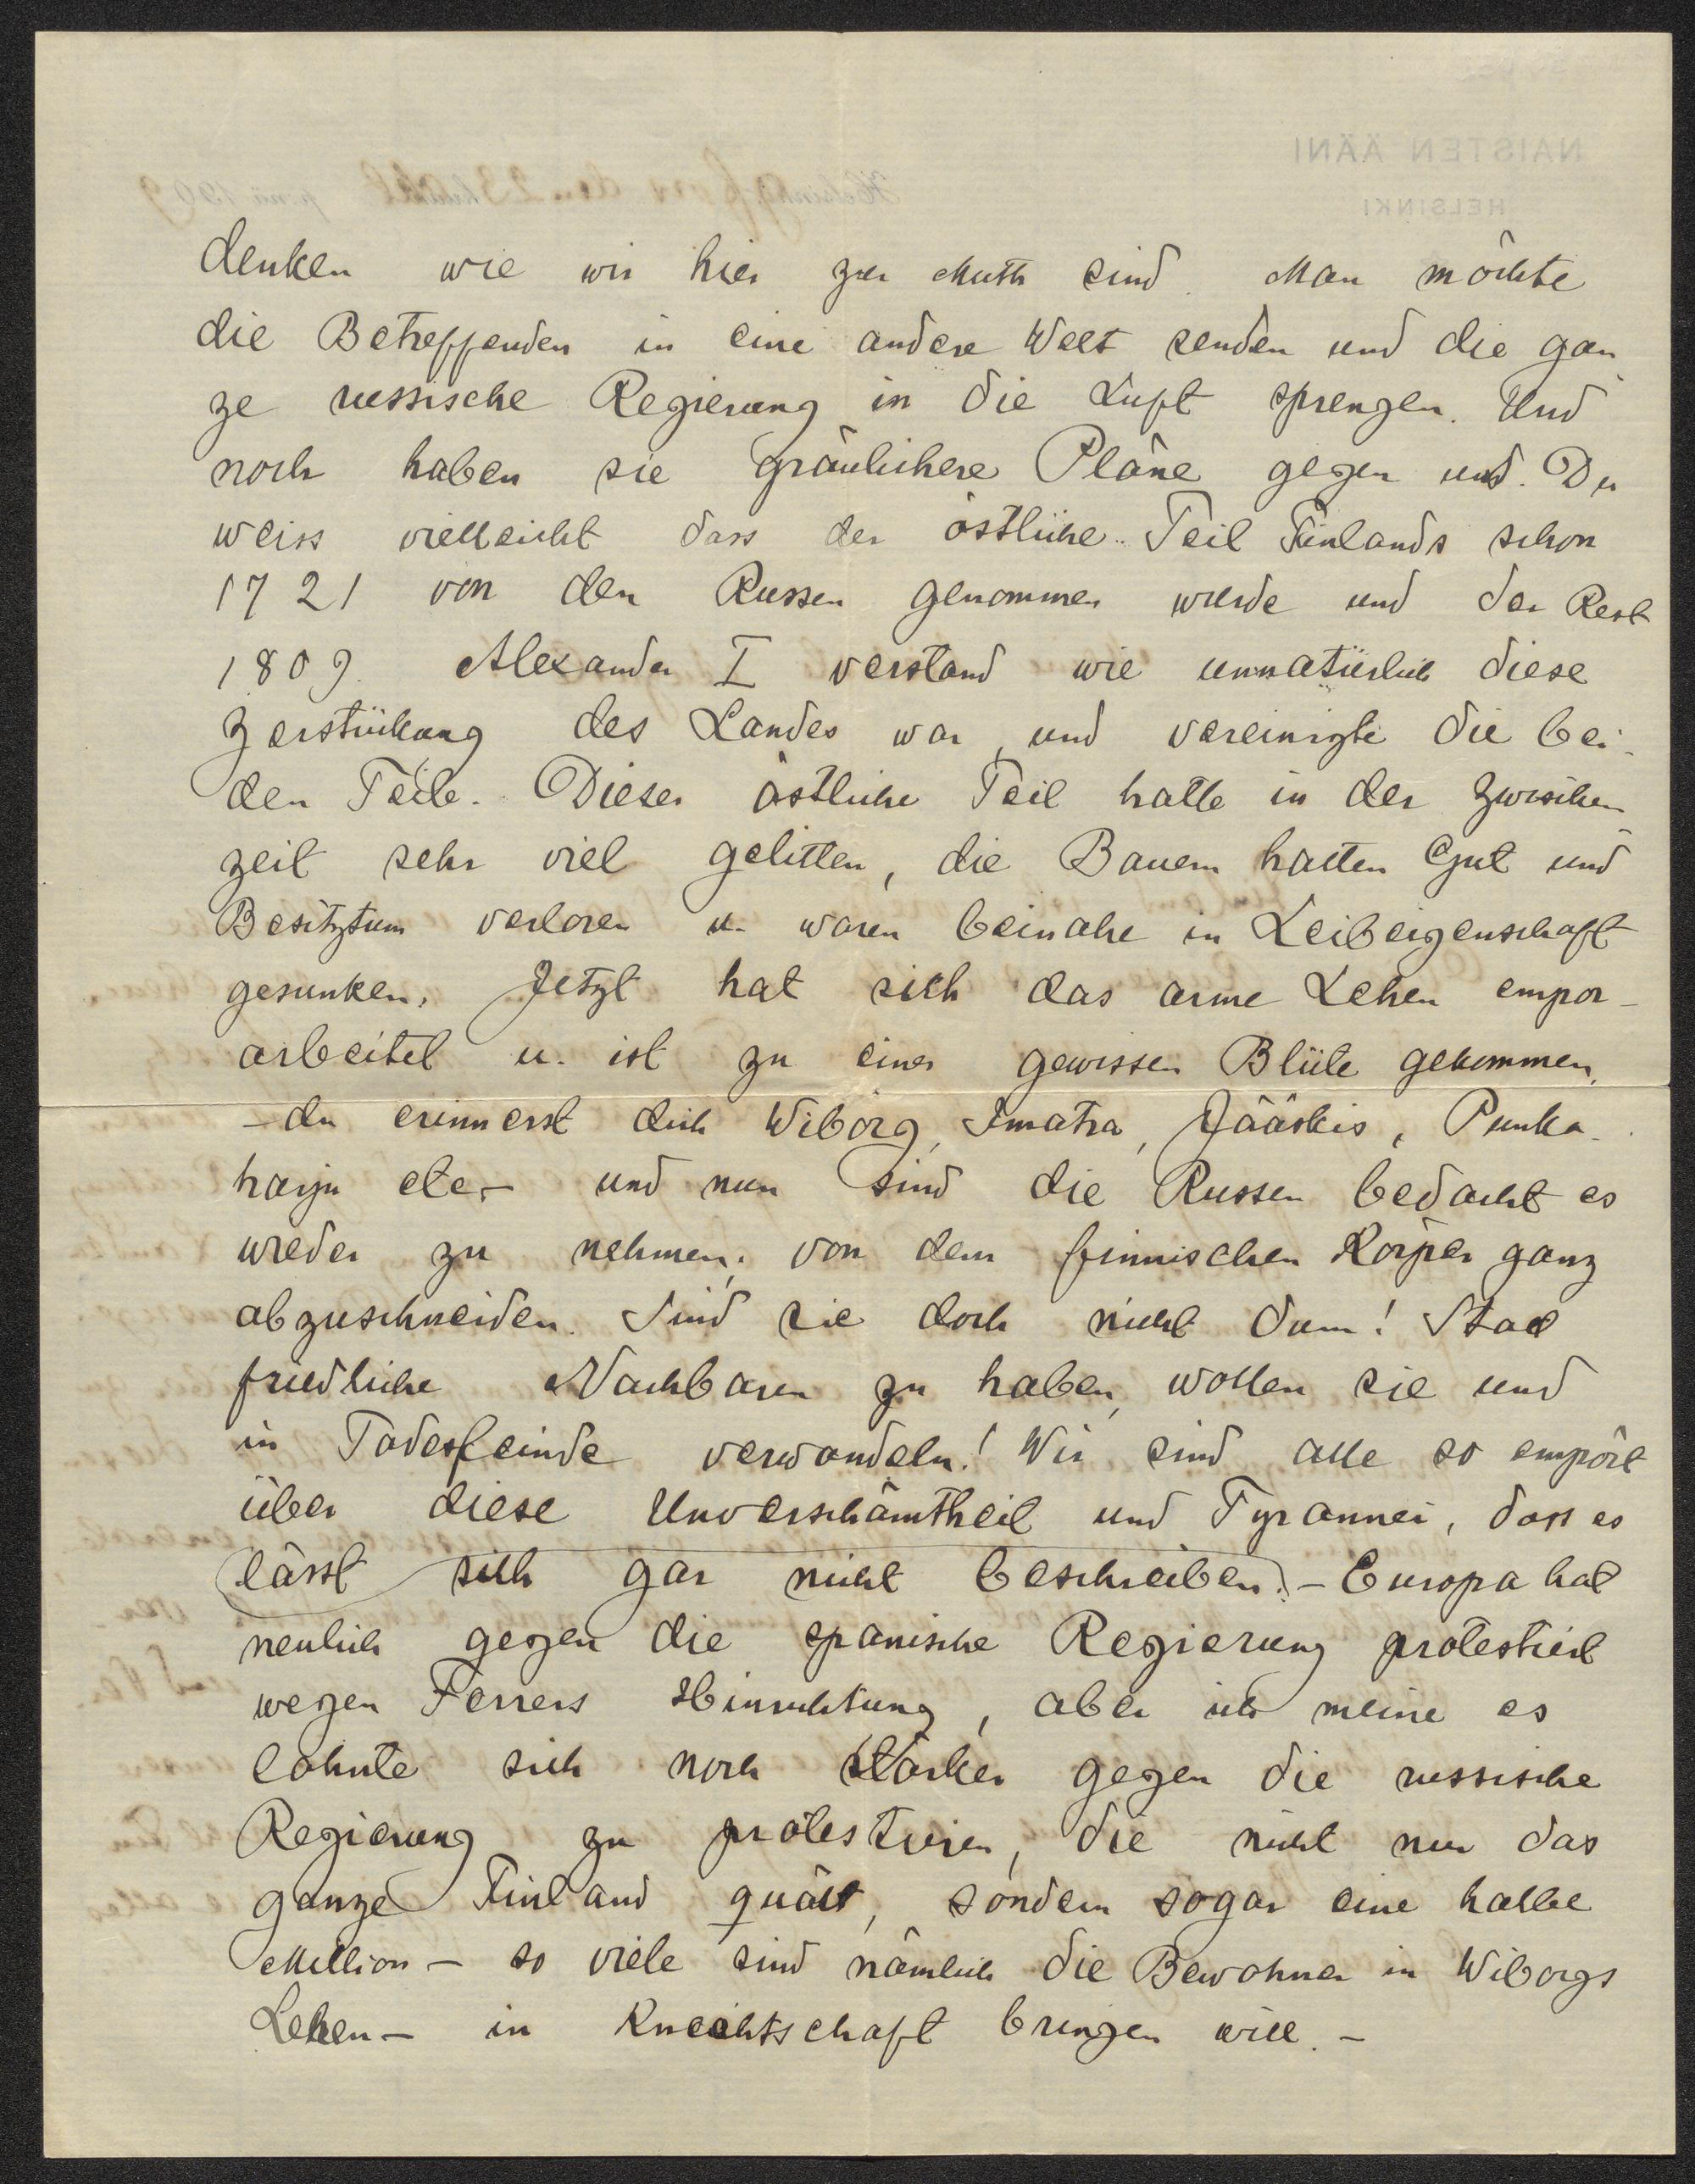 denken wie wir hier zu Muth sind. Man möchte
die Betreffenden in eine andere Welt senden und die gan
ze russische Regierung in die Luft sprengen. Und
noch haben sie gräulichere Pläne gegen uns. Du
weiss vielleicht dass der östliche Teil Finlands schon
1721 von den Russen genommen wurde und der Rest
1809. Alexander I verstand wie unnatürlich diese
Zerstückung des Landes war, und vereinigte die bei-
den Teile. Dieser östliche Teil hatte in der Zwischen
zeit sehr viel gelitten, die Bauern hatten Gut und
Besitztum verloren u. waren beinahe in Leibeigenschaft
gesunken. Jetzt hat sich das arme Lehen empor-
arbeitet u. ist zu einer gewissen Blüte gekommen,
– du erinnerst dich Wiborg, Imatra, Jääskis, Punka-
harju etc. – und nun sind die Russen bedacht es
wieder zu nehmen, von dem finnischen Körper ganz
abzuschneiden. Sind sie doch nicht dum! Stad
friedliche Nachbaren zu haben, wollen sie uns
in Todesfeinde verwandeln! Wir sind alle so empört
über diese Unverschämtheit und Tyrannei, dass es
lässt sich gar nicht beschreiben. – Europa hat
neulich gegen die spanische Regierung protestiert
wegen Ferrers Hinrichtung, aber ich meine es
lohnte sich noch stärker gegen die russische
Regierung zu protestiren, die nicht nur das
ganze Finland quält, sondern sogar eine halbe
Million – so viele sind nämlich die Bewohner in Wiborgs
Lehen – in Knechtschaft bringen will. –
NAISTEN ÄÄNI
HELSINKI